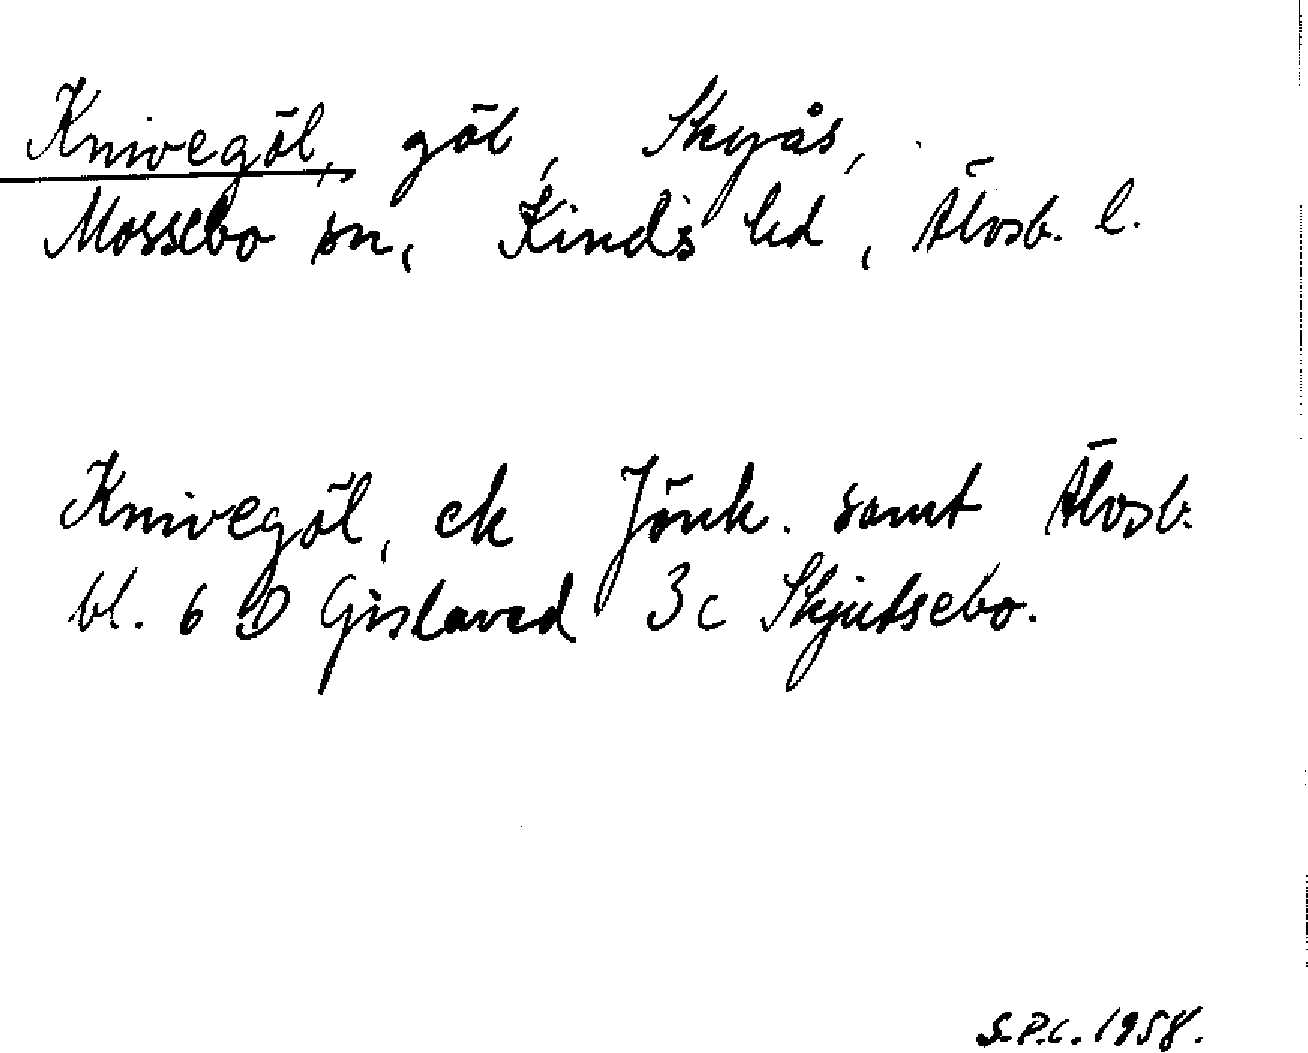 Knivegöl, göl, Skyås,
Mossebo sn, Kinds hd, Älvsb. l.
Knivegöl, ek Jönk. samt Älvsb.
bl. 6 D Gislaved 3c Skjutsebo.
S.P.C. 1958.